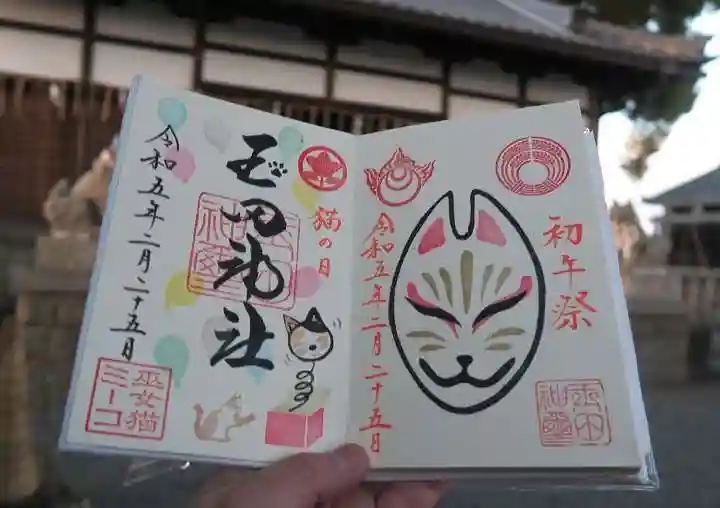 初午祭
令和五年二月二十五月
猫の日
玉田神社
令和五年二月二十五日
巫女猫
ミーコ